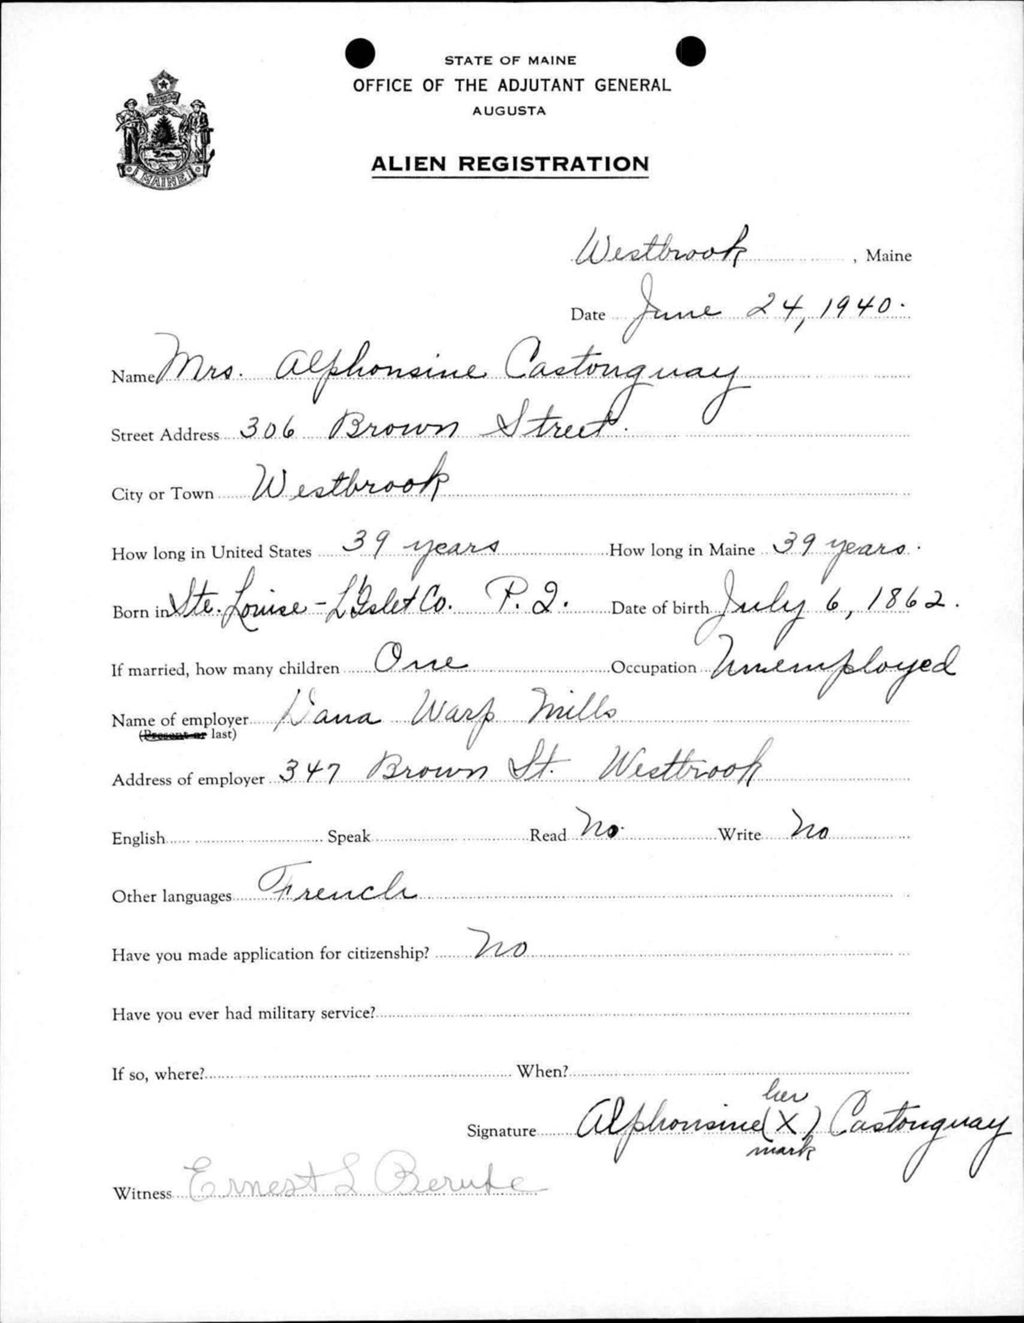 STATE OF MAINE
OFFICE OF THE ADJUTANT GENERAL
AUGUSTA
ALIEN REGISTRATION
MAINE
Westbrook, Maine
Date June 24, 1940.
Name Mrs. Alphonsine Castonguay
Street Address 306 Brown Street.
City or Town Westbrook
How long in United States 39 years How long in Maine 39 years.
Born in Ste. Louise - L'Islet Co. P. Q. Date of birth July 6, 1862.
If married, how many children One Occupation Unemployed
Name of employer Dana Warp Mills
(Present or last)
Address of employer 347 Brown St. Westbrook
English Speak Read No. Write No
Other languages French
Have you made application for citizenship? No
Have you ever had military service?
If so, where? When?
her
Signature Alphonsine (X) Castonguay
mark
Witness Ernest L Berube